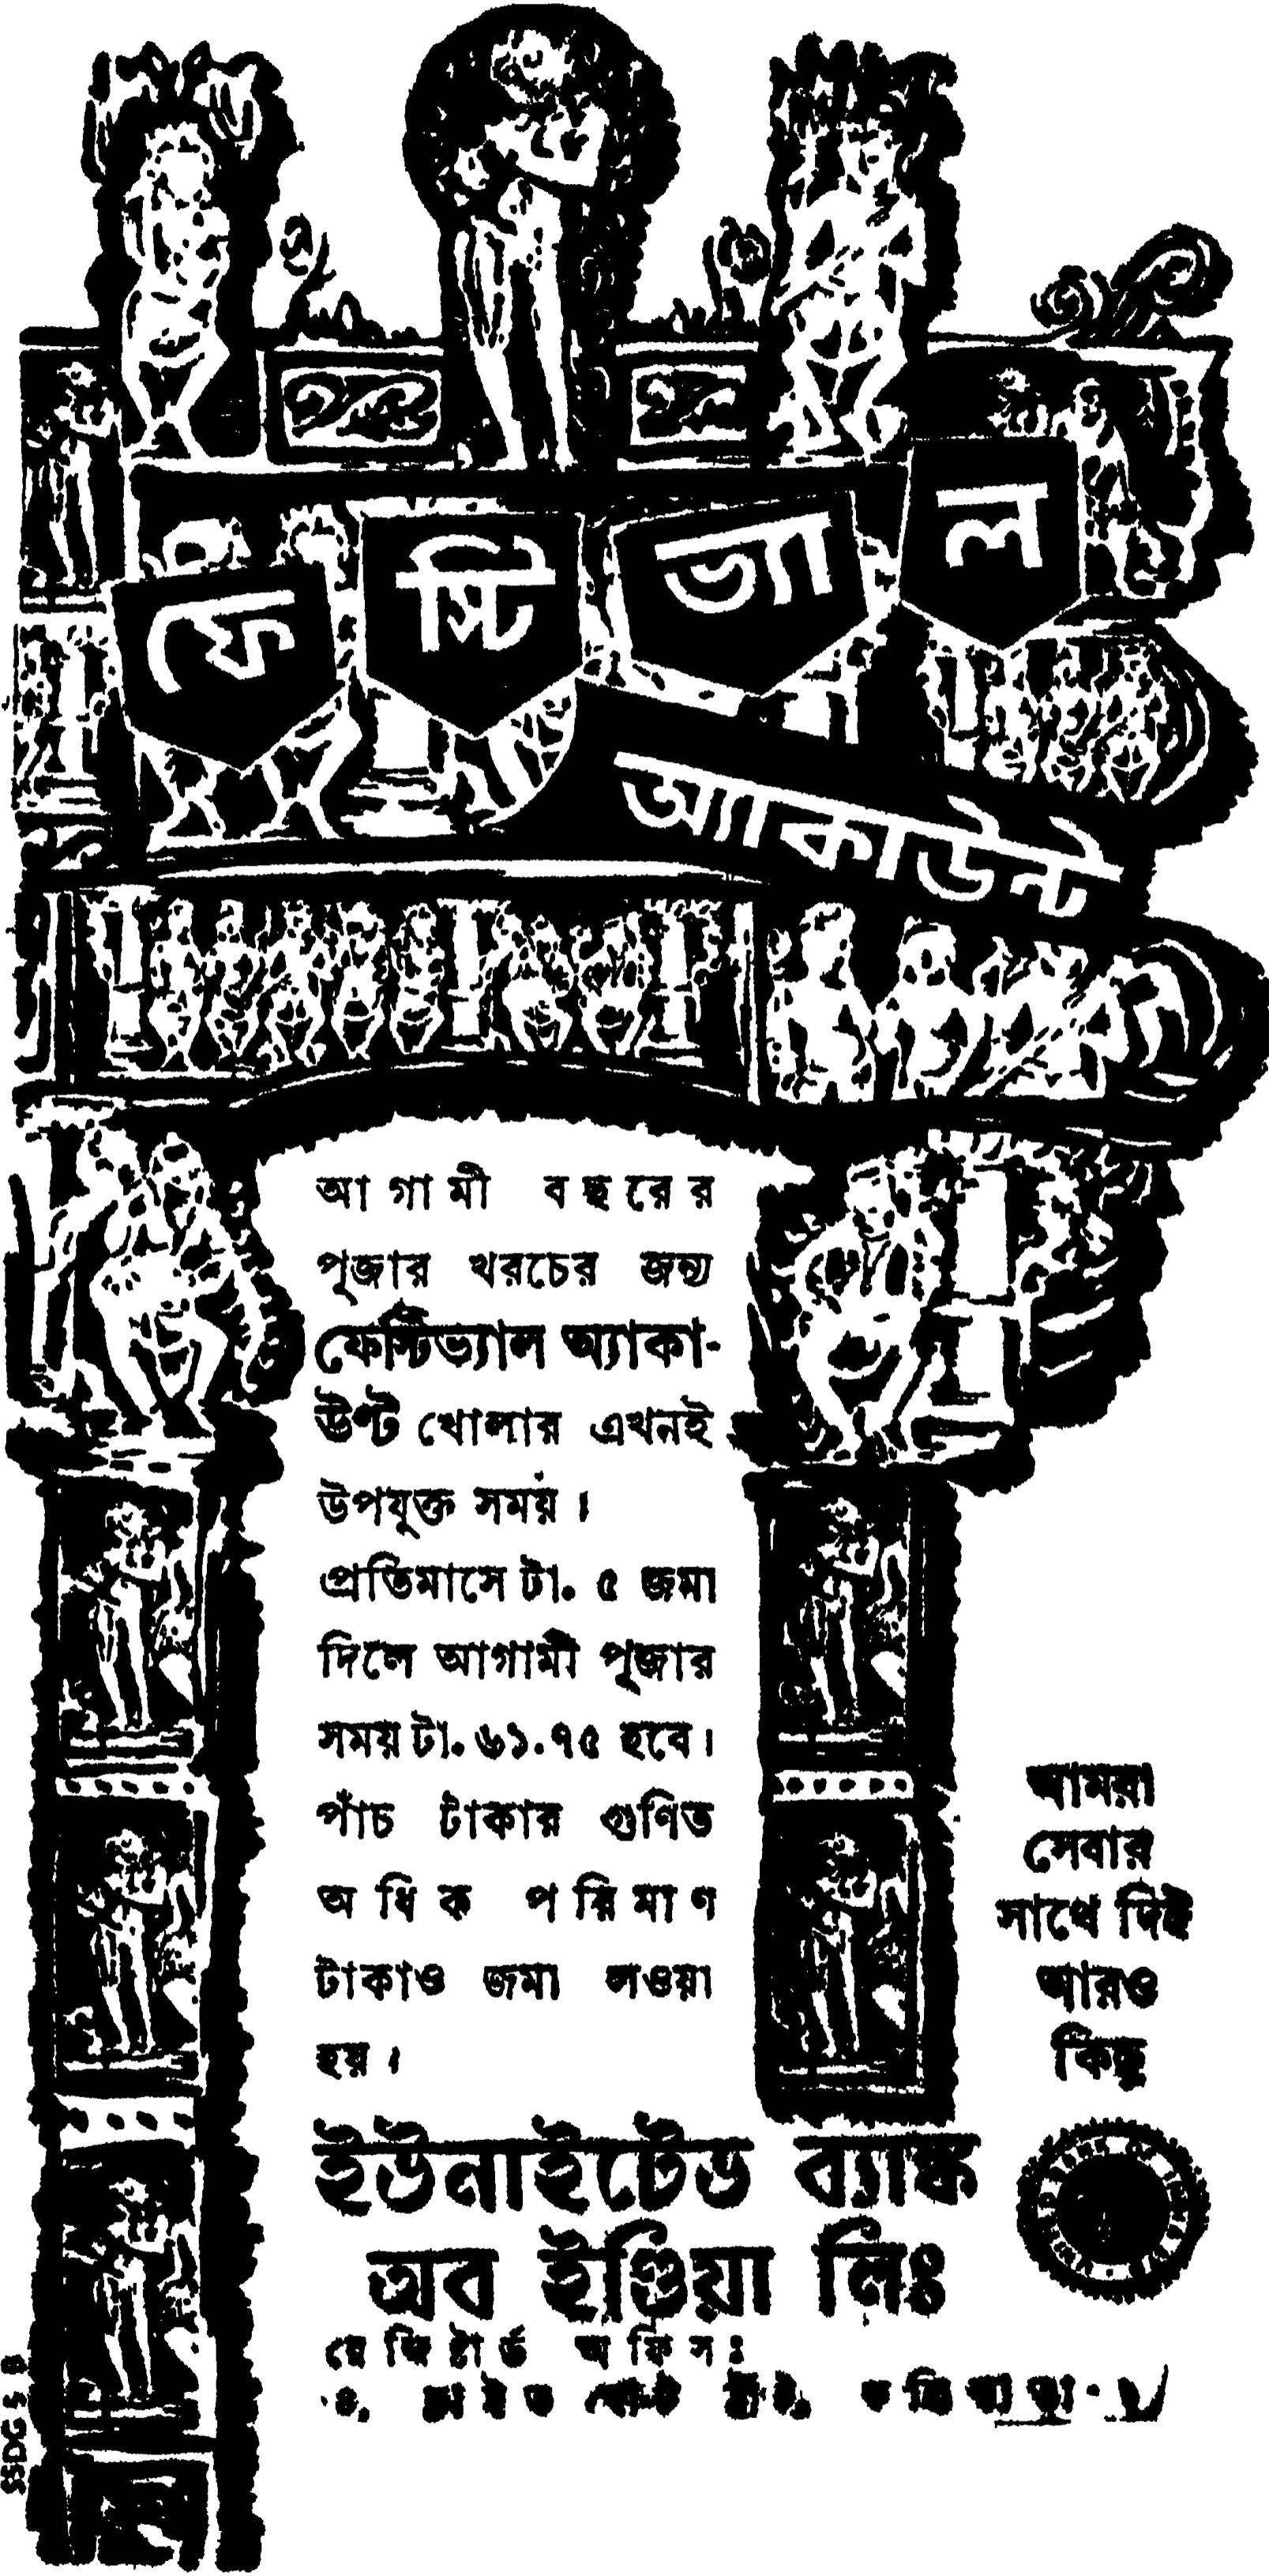 ফেস্টিভ্যাল
অ্যাকাউন্ট
আগামী বছরের
পূজার খরচের জন্য
ফেস্টিভ্যাল অ্যাকা-
উণ্ট খোলার এখনই
উপযুক্ত সময়।
প্রতিমাসে টা. ৫ জমা
দিলে আগামী পূজার
সময় টা. ৬১.৭৫ হবে।
পাঁচ টাকার গুণিত
অধিক পরিমাণ
টাকাও জমা লওয়া
হয়।
আমরা
সেবার
সাথে দিই
আরও
কিছু
ইউনাইটেড ব্যাঙ্ক
অব ইণ্ডিয়া লিঃ
রেজিষ্টার্ড অফিস: